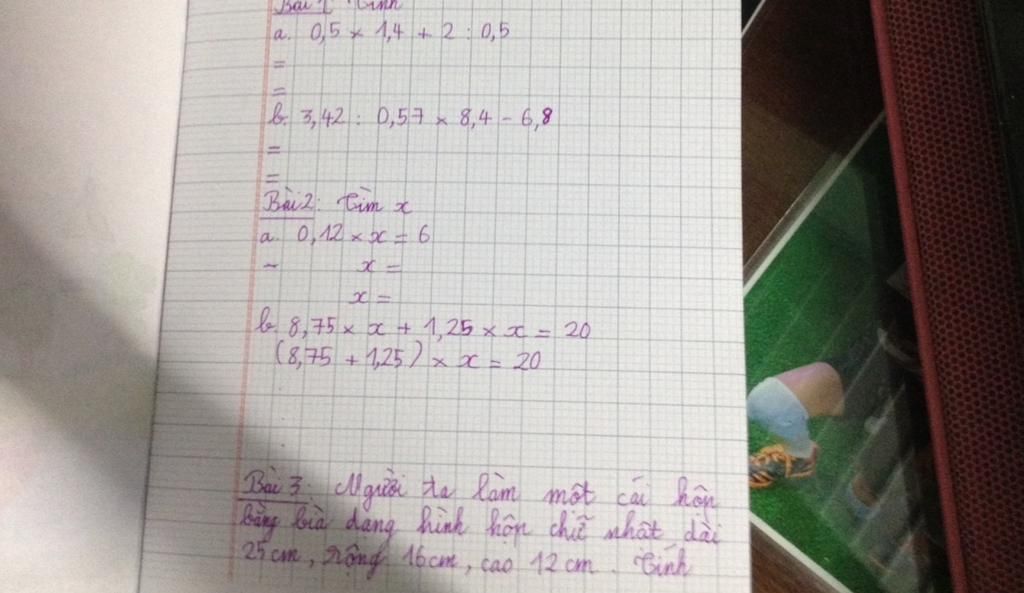 Bài 1 Tính
a. 0,5 × 1,4 + 2 : 0,5
=
=
b. 3,42 : 0,57 × 8,4 - 6,8
=
=
Bài 2: Tìm x
a. 0,12 × x = 6
- x =
x =
b. 8,75 × x + 1,25 × x = 20
(8,75 + 1,25) × x = 20
Bài 3: Người ta làm một cái hộp
bằng bìa dạng hình hộp chữ nhật dài
25cm, rộng 16cm, cao 12cm. Tính